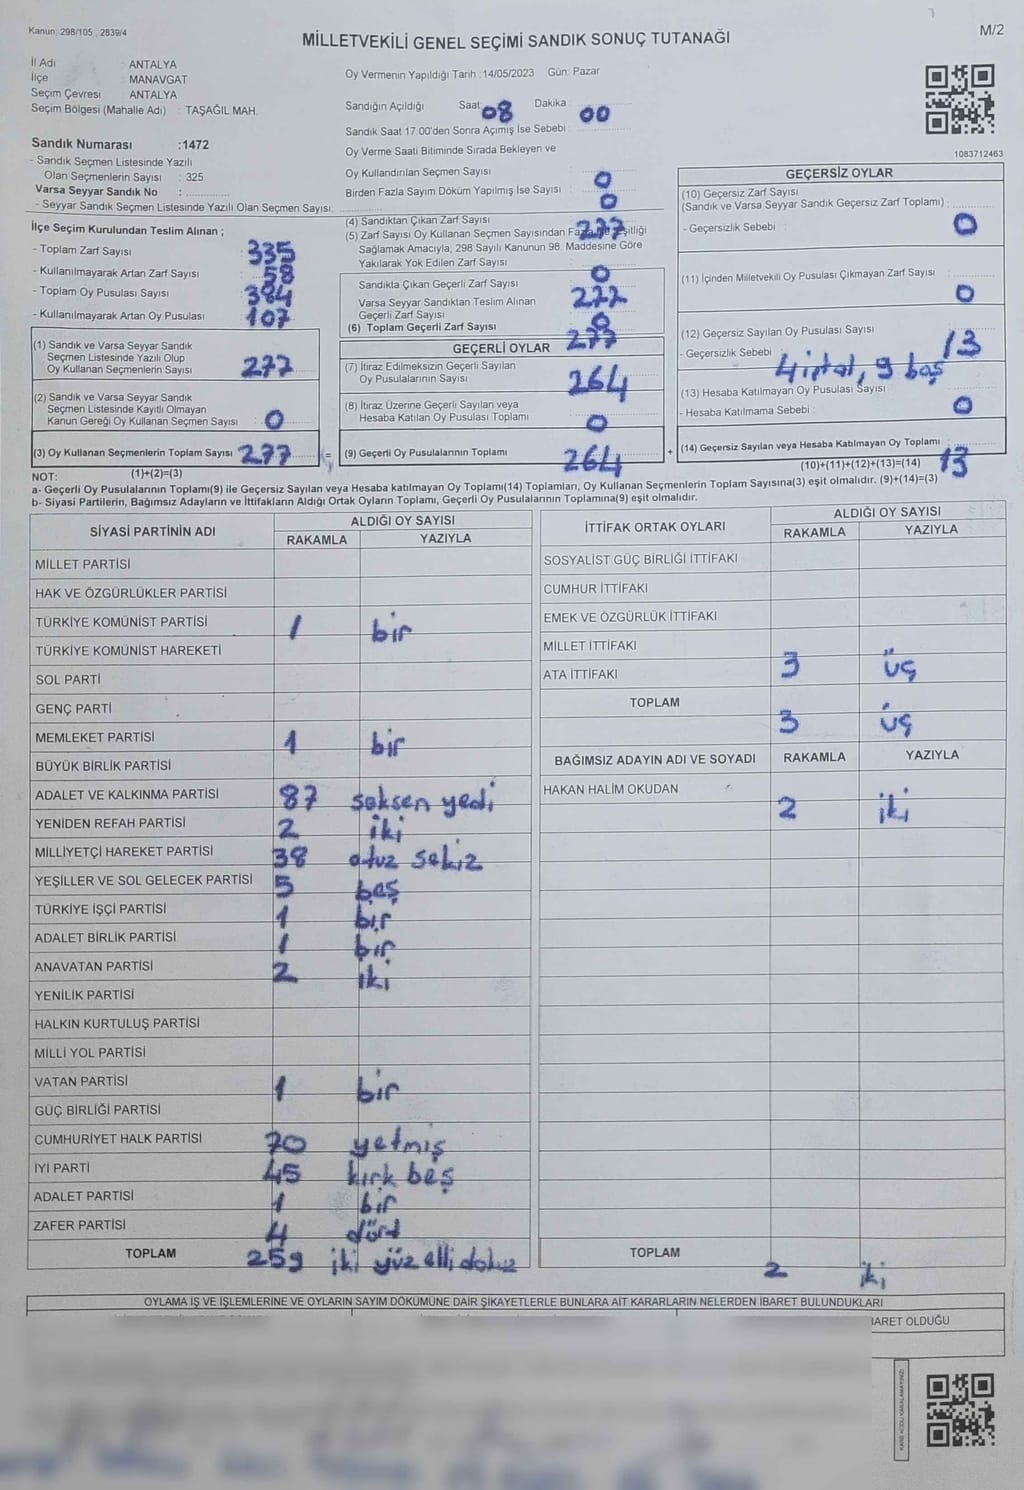 Kanun: 298/105 , 2839/4
MİLLETVEKİLİ GENEL SEÇİMİ SANDIK SONUÇ TUTANAĞI
M/2
İl Adı : ANTALYA
İlçe : MANAVGAT
Seçim Çevresi : ANTALYA
Seçim Bölgesi (Mahalle Adı) : TAŞAĞIL MAH.
Sandık Numarası :1472
- Sandık Seçmen Listesinde Yazılı
Olan Seçmenlerin Sayısı : 325
Varsa Seyyar Sandık No :
- Seyyar Sandık Seçmen Listesinde Yazılı Olan Seçmen Sayısı:
Oy Vermenin Yapıldığı Tarih :14/05/2023 Gün: Pazar
Sandığın Açıldığı Saat 08 Dakika 00
Sandık Saat 17:00'den Sonra Açımış İse Sebebi :
Oy Verme Saati Bitiminde Sırada Bekleyen ve
Oy Kullandırılan Seçmen Sayısı : 0
Birden Fazla Sayım Döküm Yapılmış İse Sayısı : 0
1083712463
İlçe Seçim Kurulundan Teslim Alınan ;
- Toplam Zarf Sayısı : 335
- Kullanılmayarak Artan Zarf Sayısı : 58
- Toplam Oy Pusulası Sayısı : 384
- Kullanılmayarak Artan Oy Pusulası : 107
(1) Sandık ve Varsa Seyyar Sandık
Seçmen Listesinde Yazılı Olup
Oy Kullanan Seçmenlerin Sayısı 277
(2) Sandık ve Varsa Seyyar Sandık
Seçmen Listesinde Kayıtlı Olmayan
Kanun Gereği Oy Kullanan Seçmen Sayısı 0
(3) Oy Kullanan Seçmenlerin Toplam Sayısı 277
(1)+(2)=(3)
(4) Sandıktan Çıkan Zarf Sayısı : 277
(5) Zarf Sayısı Oy Kullanan Seçmen Sayısından Eşitliği
Sağlamak Amacıyla, 298 Sayılı Kanunun 98. Maddesine Göre
Yakılarak Yok Edilen Zarf Sayısı 0
Sandıkta Çıkan Geçerli Zarf Sayısı 277
Varsa Seyyar Sandıktan Teslim Alınan
Geçerli Zarf Sayısı 0
(6) Toplam Geçerli Zarf Sayısı 277
GEÇERLİ OYLAR
(7) İtiraz Edilmeksizin Geçerli Sayılan
Oy Pusulalarının Sayısı 264
(8) İtiraz Üzerine Geçerli Sayılan veya
Hesaba Katılan Oy Pusulası Toplamı 0
=
(9) Geçerli Oy Pusulalarının Toplamı 264
+
GEÇERSİZ OYLAR
(10) Geçersiz Zarf Sayısı
(Sandık ve Varsa Seyyar Sandık Geçersiz Zarf Toplamı) :
- Geçersizlik Sebebi : 0
(11) İçinden Milletvekili Oy Pusulası Çıkmayan Zarf Sayısı
0
(12) Geçersiz Sayılan Oy Pusulası Sayısı 13
- Geçersizlik Sebebi 4 iptal, 9 boş
(13) Hesaba Katılmayan Oy Pusulası Sayısı
- Hesaba Katılmama Sebebi : 0
(14) Geçersiz Sayılan veya Hesaba Katılmayan Oy Toplamı 13
(10)+(11)+(12)+(13)=(14)
NOT:
a- Geçerli Oy Pusulalarının Toplamı(9) ile Geçersiz Sayılan veya Hesaba katılmayan Oy Toplamı(14) Toplamları, Oy Kullanan Seçmenlerin Toplam Sayısına(3) eşit olmalıdır. (9)+(14)=(3)
b- Siyasi Partilerin, Bağımsız Adayların ve İttifakların Aldığı Ortak Oyların Toplamı, Geçerli Oy Pusulalarının Toplamına(9) eşit olmalıdır.
SİYASİ PARTİNİN ADI ALDIĞI OY SAYISI
RAKAMLA YAZIYLA
MİLLET PARTİSİ
HAK VE ÖZGÜRLÜKLER PARTİSİ
TÜRKİYE KOMÜNİST PARTİSİ 1 bir
TÜRKİYE KOMÜNİST HAREKETİ
SOL PARTİ
GENÇ PARTİ
MEMLEKET PARTİSİ 1 bir
BÜYÜK BİRLİK PARTİSİ
ADALET VE KALKINMA PARTİSİ 87 seksen yedi
YENİDEN REFAH PARTİSİ 2 iki
MİLLİYETÇİ HAREKET PARTİSİ 38 otuz sekiz
YEŞİLLER VE SOL GELECEK PARTİSİ 5 beş
TÜRKİYE İŞÇİ PARTİSİ 1 bir
ADALET BİRLİK PARTİSİ 1 bir
ANAVATAN PARTİSİ 2 iki
YENİLİK PARTİSİ
HALKIN KURTULUŞ PARTİSİ
MİLLİ YOL PARTİSİ
VATAN PARTİSİ 1 bir
GÜÇ BİRLİĞİ PARTİSİ
CUMHURİYET HALK PARTİSİ 70 yetmiş
İYİ PARTİ 45 kırk beş
ADALET PARTİSİ 1 bir
ZAFER PARTİSİ 4 dört
TOPLAM 259 iki yüz elli dokuz
İTTİFAK ORTAK OYLARI ALDIĞI OY SAYISI
RAKAMLA YAZIYLA
SOSYALİST GÜÇ BİRLİĞİ İTTİFAKI
CUMHUR İTTİFAKI
EMEK VE ÖZGÜRLÜK İTTİFAKI
MİLLET İTTİFAKI 3 üç
ATA İTTİFAKI
TOPLAM 3 üç
BAĞIMSIZ ADAYIN ADI VE SOYADI RAKAMLA YAZIYLA
HAKAN HALİM OKUDAN 2 iki
TOPLAM 2 iki
OYLAMA İŞ VE İŞLEMLERİNE VE OYLARIN SAYIM DÖKÜMÜNE DAİR ŞİKAYETLERLE BUNLARA AİT KARARLARIN NELERDEN İBARET BULUNDUKLARI
İBARET OLDUĞU
KARE KODU KARALAMAYINIZ!